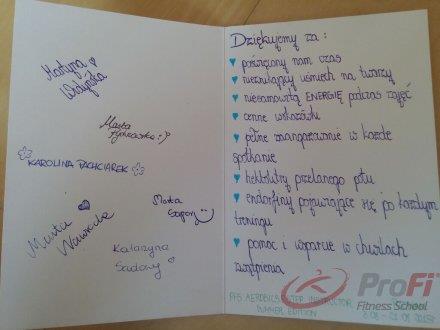 Martyna
Marta
KAROLINA PACHCIAREK
Marta
Marta
Nawrocka
Katarzyna
Sadowy
Dziękujemy za:
poświęcony nam czas
nieznikający uśmiech na twarzy
niesamowitą ENERGIĘ podczas zajęć
cenne wskazówki
pełne zaangażowanie w każde
spotkanie
hektolitry przelanego potu
endorfiny pojawiające się po każdym
treningu
pomoc i wsparcie w chwilach
zwątpienia
PFS AEROBICS STEP INSTRUCTOR
SUMMER EDITION
ProFi
Fitness School